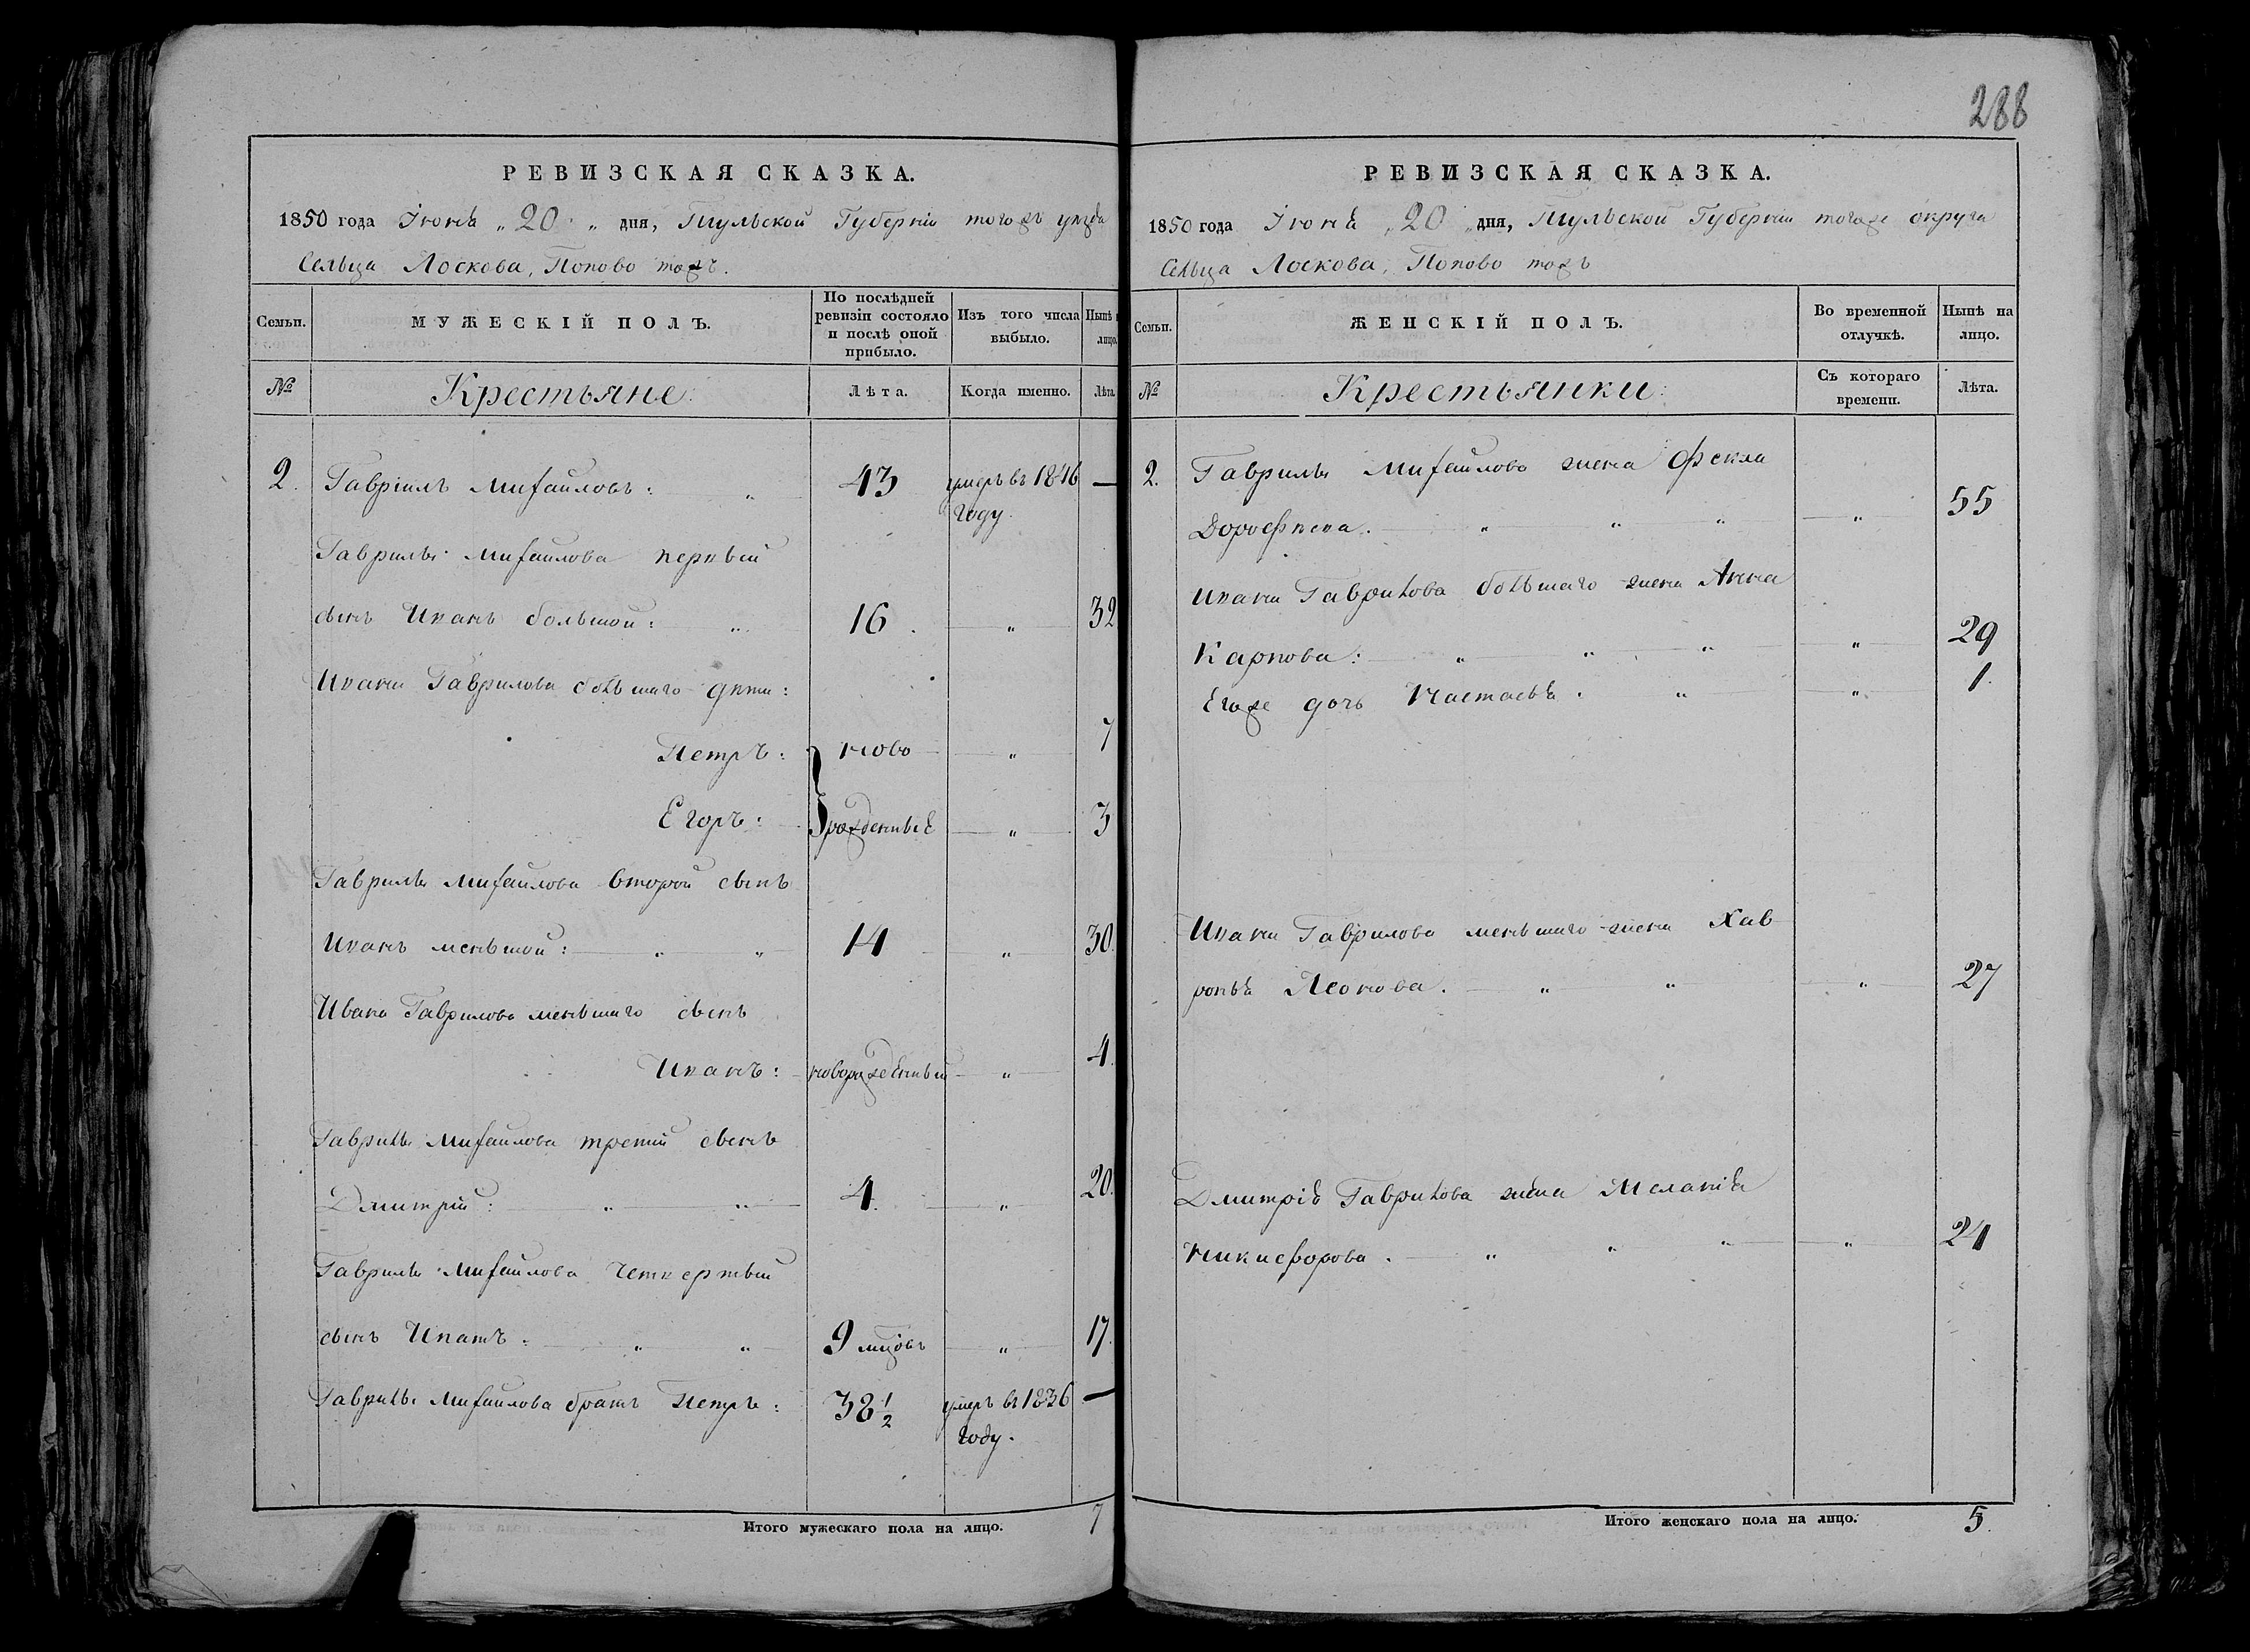 288
РЕВИЗСКАЯ СКАЗКА.
1850 года Іюня „20„ дня, Тульской Губерніи тогожъ уезда
Сельца Лоскова, Попово тожъ.
Семьи.
МУЖЕСКІЙ ПОЛЪ.
По послѣдней ревизіи состояло и послѣ оной прибыло.
Изъ того числа выбыло.
Нынѣ на лицо.
№
Крестьяне:
Лѣта.
Когда именно.
Лѣта.
2. Гавріилъ Михайловъ: 43 умеръ въ 1846 —
году.
Гаврилы Михайлова первый
сынъ Иванъ большой: 16. „ 32
Ивана Гаврилова большаго дети:
Петръ: ново „ 7
Егоръ: рожденные „ 3
Гаврилы Михайлова второй сынъ
Иванъ меньшой: 14 „ 30.
Ивана Гаврилова меньшаго сынъ
Иванъ: новорожденный „ 4.
Гаврилы Михайлова третий сынъ
Дмитрій: 4. „ 20.
Гаврилы Михайлова четвертый
сынъ Ипатъ: 9 мцовъ „ 17.
Гаврилы Михайлова братъ Петръ: 38 1/2 умеръ въ 1836 —
году.
Итого мужескаго пола на лицо. 7
РЕВИЗСКАЯ СКАЗКА.
1850 года Іюня „20„ дня, Тульской Губерніи тогоже округа
Сельца Лоскова, Попово тожъ
Семьи.
ЖЕНСКІЙ ПОЛЪ.
Во временной отлучкѣ.
Нынѣ на лицо.
№
Крестьянки:
Съ котораго времени.
Лѣта.
2. Гаврилы Михайлова жена Фекла
Дорофеева. „ „ „ „ 55
Ивана Гаврилова большаго жена Анна
Карпова: „ „ „ „ 29
Егоже дочь Настасья. „ „ 1.
Ивана Гаврилова меньшаго жена Хав
ронья Леонова. „ „ „ 27
Дмитрія Гаврилова жена Меланія
Никифорова. „ „ „ „ 24
Итого женскаго пола на лицо. 5.